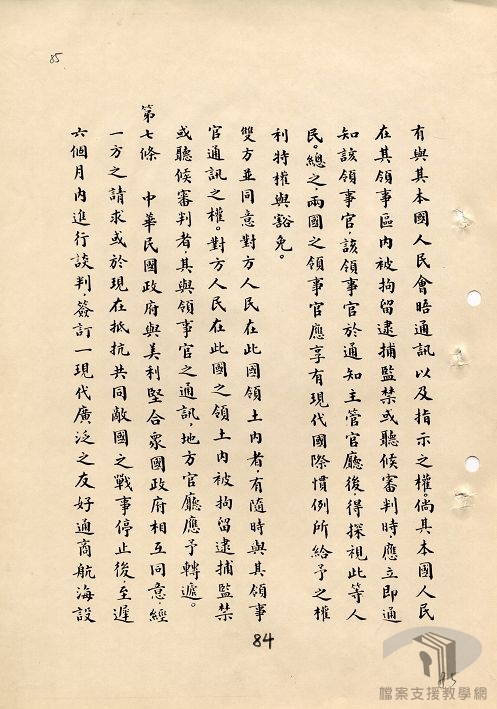 85
有與其本國人民會晤通訊以及指示之權。倘其本國人民
在其領事區內被拘留逮捕監禁或聽候審判時，應立即通
知該領事官，該領事官於通知主管官廳後，得探視此等人
民。總之，兩國之領事官應享有現代國際慣例所給予之權
利特權與豁免。
雙方並同意對方人民在此國領土內者，有隨時與其領事
官通訊之權。對方人民在此國之領土內被拘留逮捕監禁
或聽候審判者，其與領事官之通訊，地方官廳應予轉遞。
第七條　中華民國政府與美利堅合衆國政府相互同意，經
一方之請求或於現在抵抗共同敵國之戰事停止後，至遲
六個月內進行談判，簽訂一現代廣泛之友好通商航海設
84
85
檔案支援教學網